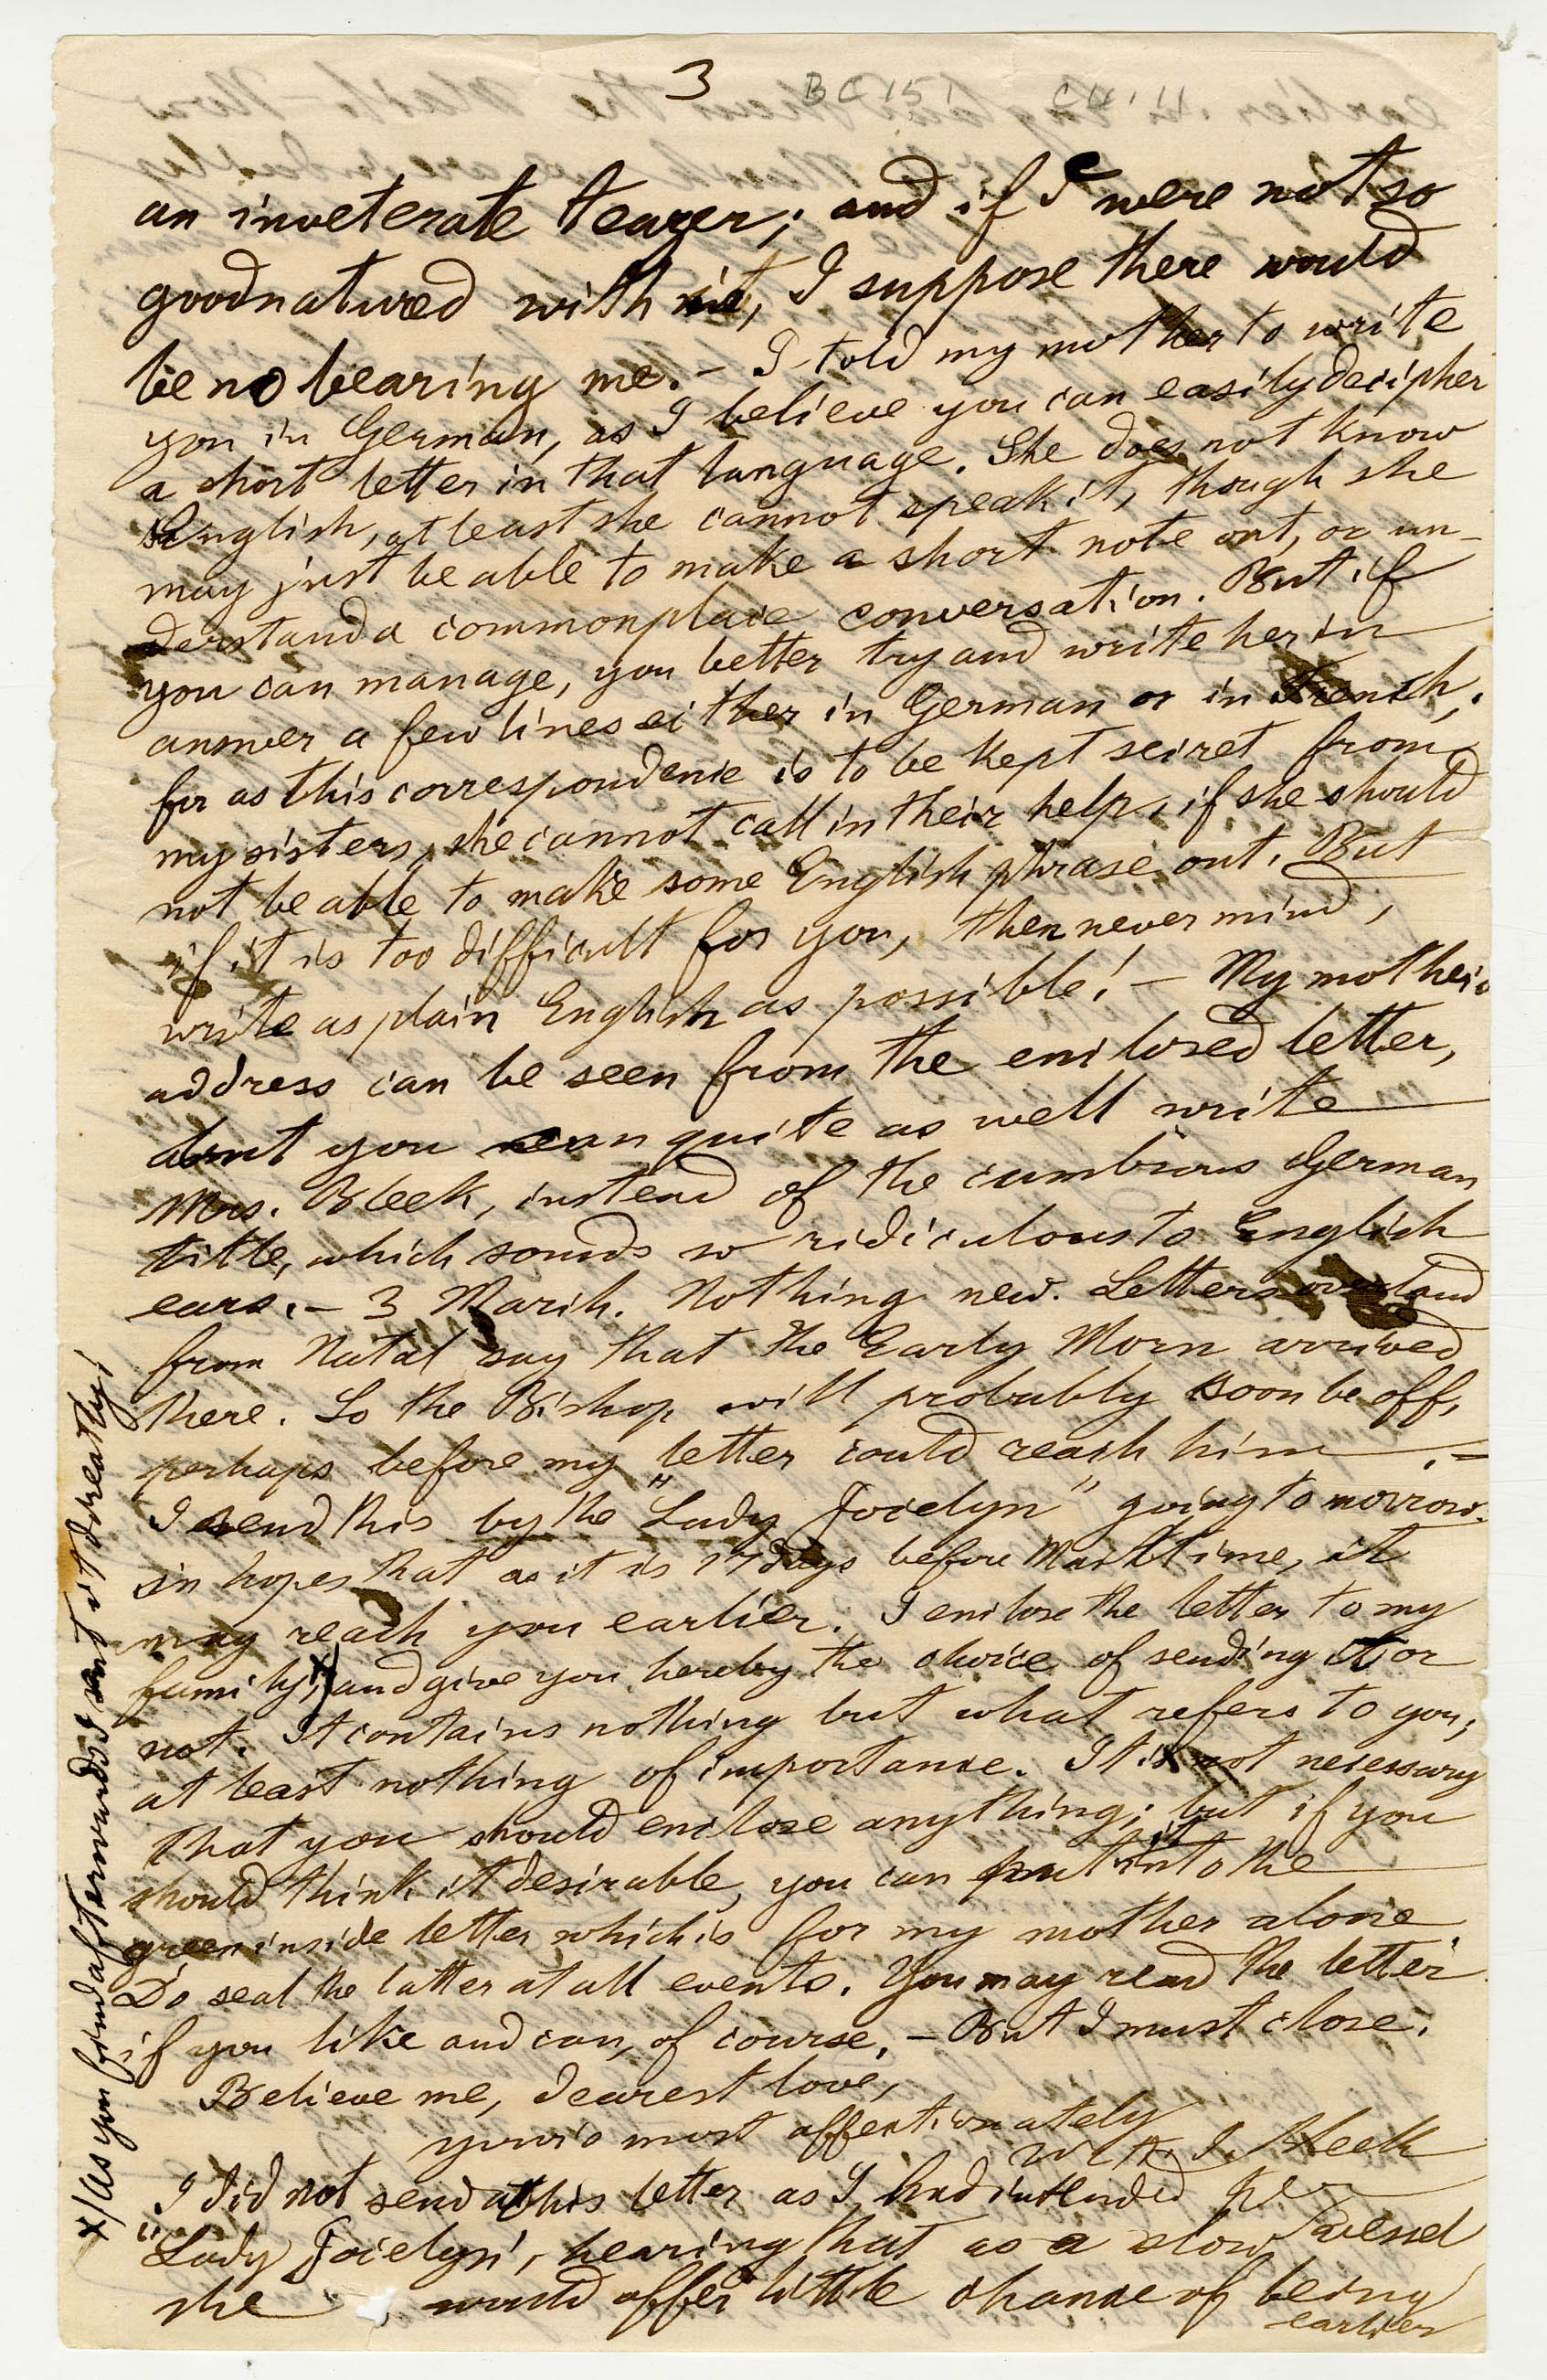 3 BC 151 C4.11
an inveterate teazer; and if I were not so
goodnatured with it, I suppose there would
be no bearing me. – I told my mother to write
you in German, as I believe you can easily decipher
a short letter in that language. She does not know
English, at least she cannot speak it, though she
may just be able to make a short note out, or un-
derstand a commonplace conversation. But if
you can manage, you better try and write her in
answer a few lines either in German or in French,
for as this correspondence is to be kept secret from
my sisters, she cannot call in their help, if she should
not be able to make some English phrase out. But
if it is too difficult for you, then never mind,
write as plain English as possible! – My mother's
address can be seen from the enclosed letter,
but you can quite as well write
Mrs. Bleek, instead of the cumbrous German
title, which sounds so ridiculous to English
ears. – 3 March. Nothing new. Letters overland
from Natal say that the Early Morn arrived
there. So the Bishop will probably soon be off,
perhaps before my letter could reach him. –
I send this by the "Lady Jocelyn" going tomorrow.
in hopes that as it is 17 days before Mailtime, it
may reach you earlier. I enclose the letter to my
family, x) and give you hereby the choice of sending it or
not. It contains nothing but what refers to you;
at least nothing of importance. It is not necessary
that you should enclose anything; but if you
should think it desirable, you can put it into the
green inside letter which is for my mother alone
Do seal the latter at all events. You may read the letter
if you like and can, of course. – But I must close.
Believe me, dearest love,
yours most affectionately
W. H. I. Bleek
I did not send this letter as I had intended per
"Lady Jocelyn", hearing that as a slow vessel
she would offer little chance of being
earlier
x) As you find afterwards I sent it directly!